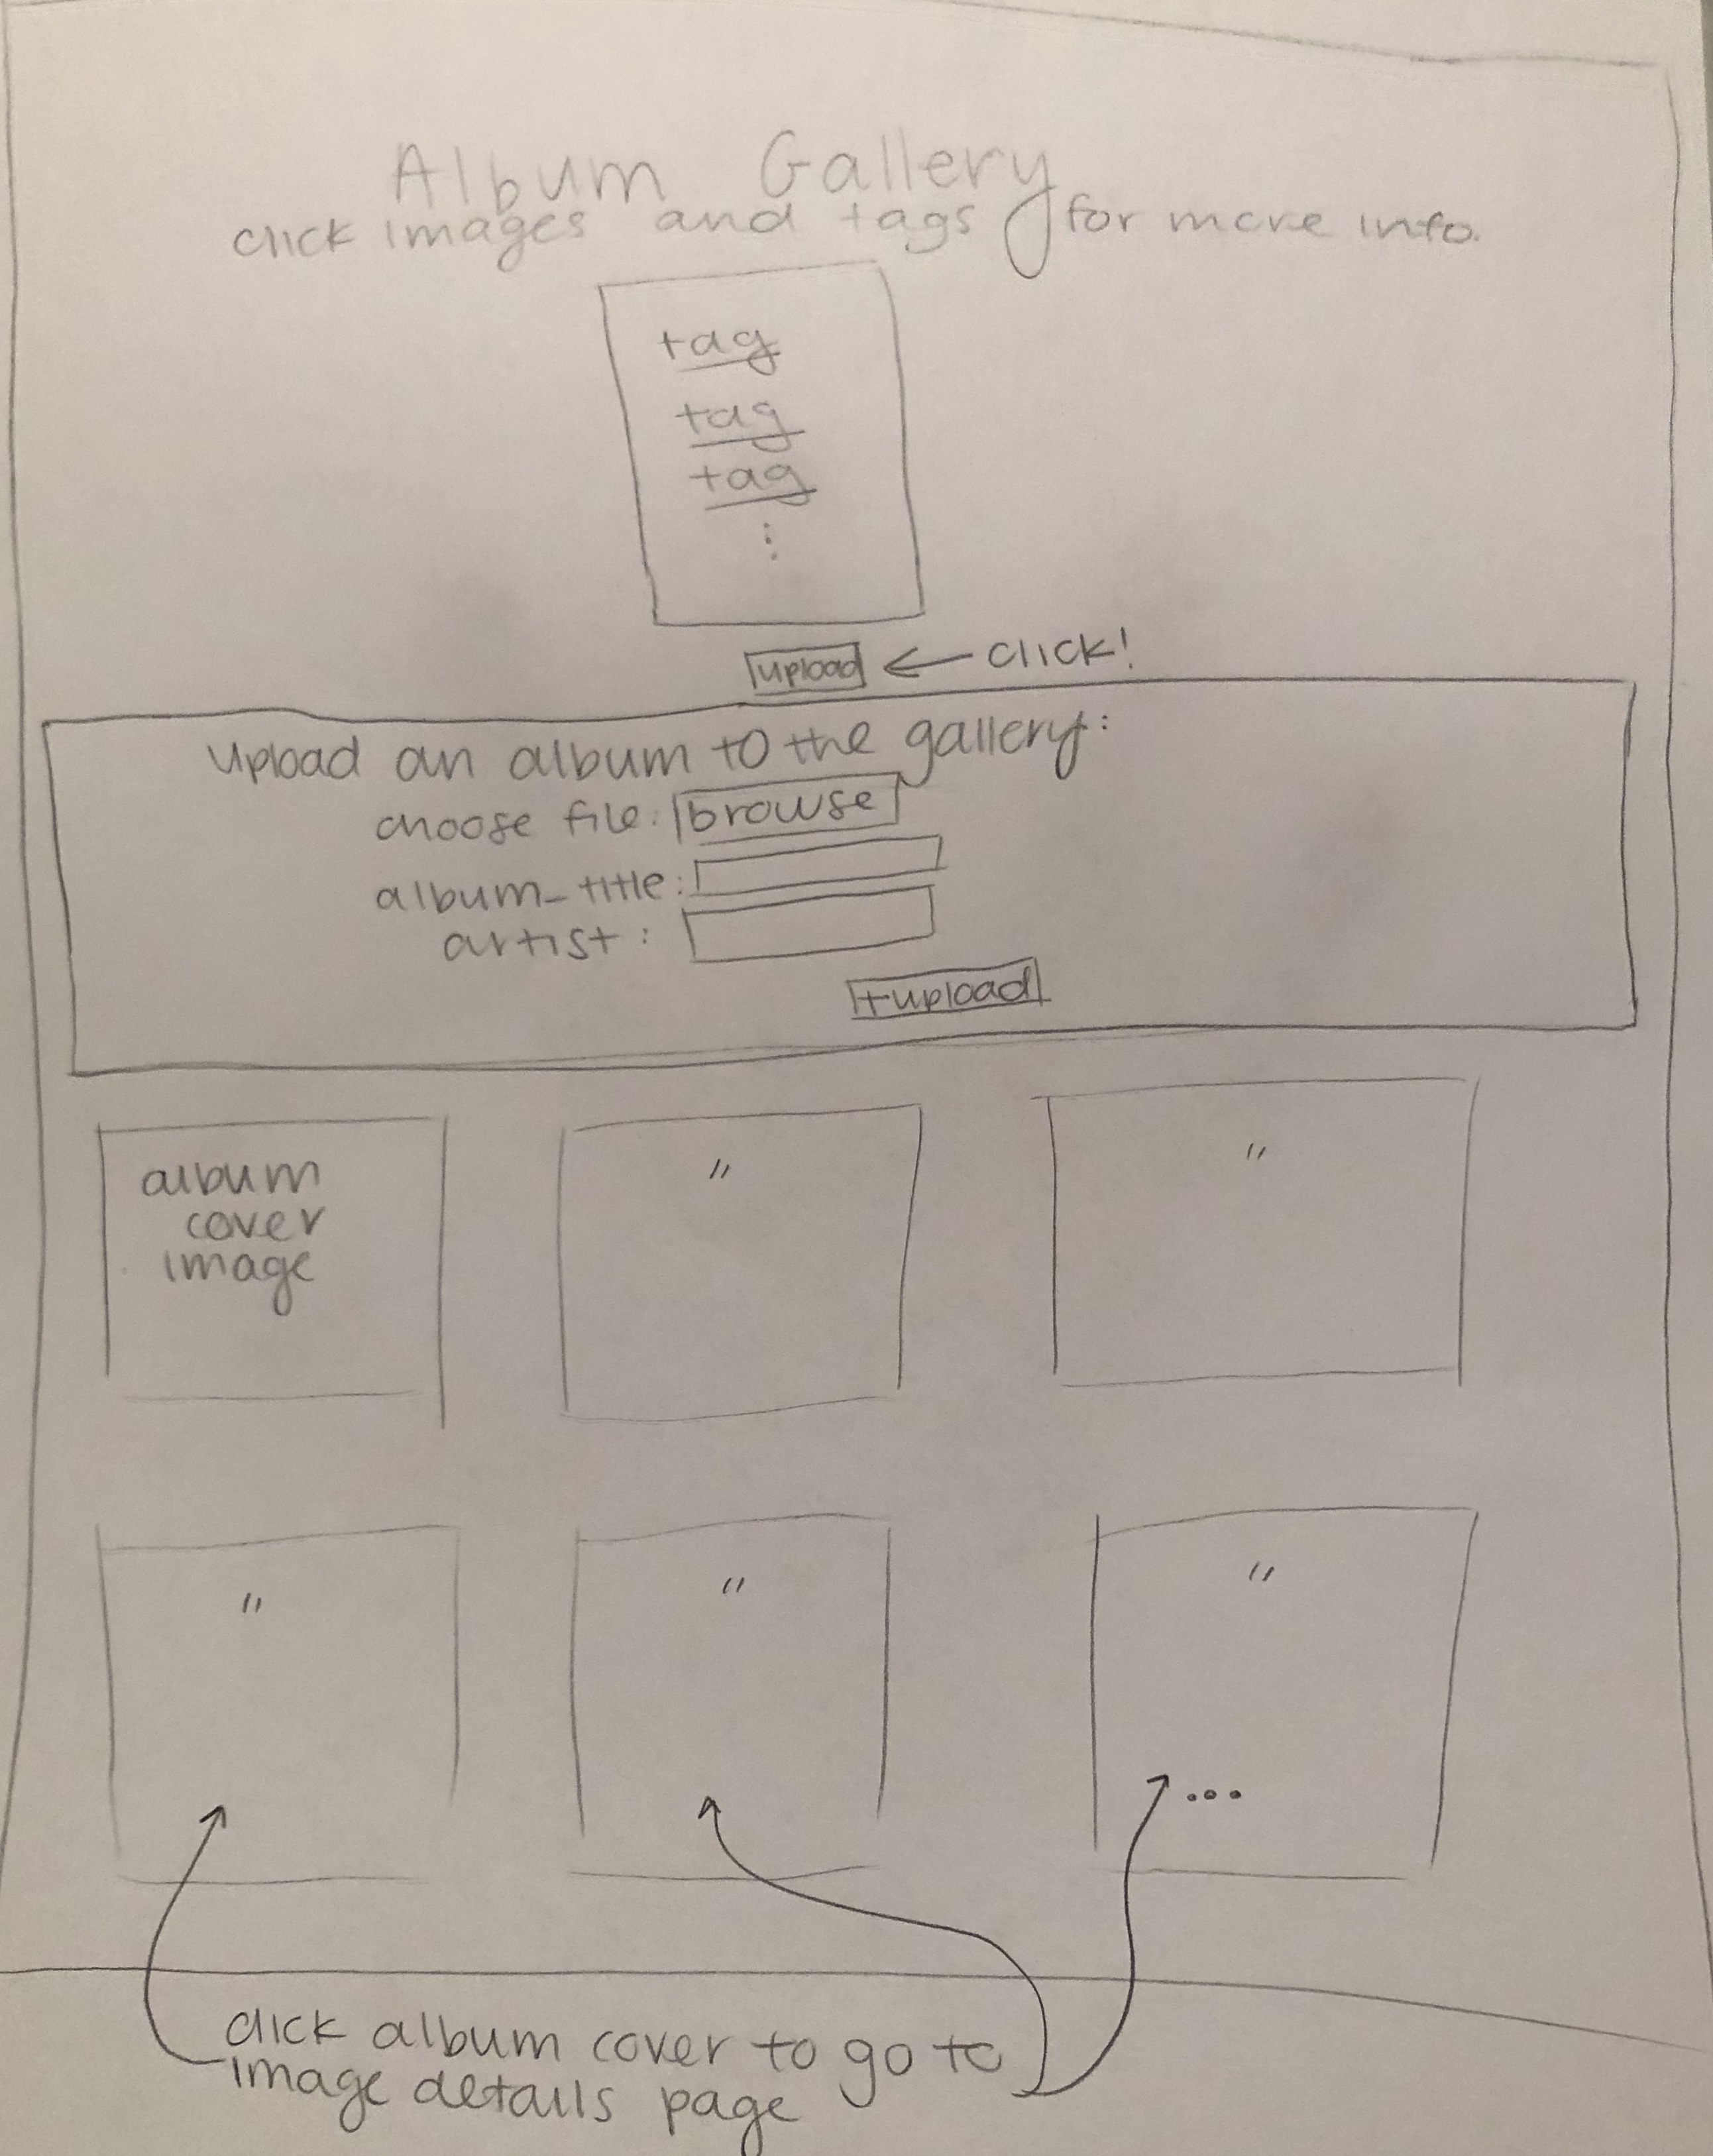 Album Gallery
click images and tags for more info.
tag
tag
tag
⋮
upload ← click!
upload an album to the gallery:
choose file: browse
album_title:
artist:
+upload
album
cover
image
"
"
"
"
"
...
click album cover to go to
image details page